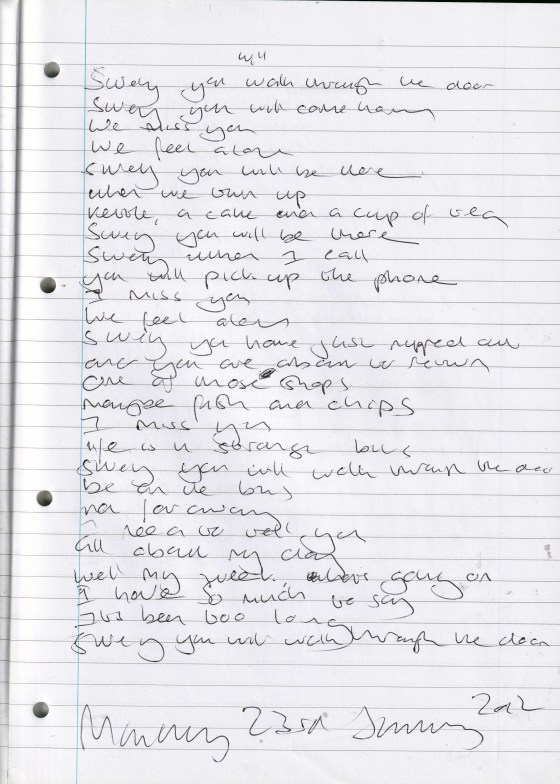 will
Surely you walk through the door
Surely you will come home
We miss you
We feel alone
Surely you will be there
when we turn up
Kettle, a cake and a cup of tea
Surely you will be there
Surely when I call
you will pick up the phone
I miss you
We feel alone
Surely you have just popped out
and you are about to return
One of those shops
maybe fish and chips
I miss you
life is a strange
Surely you will walk through the door
be on the bus
not far away
I need to tell you
all about my day
well my week. whats going on
I have so much to say
Its been too long
Surely you will walk through the door
Monday 23rd January 2012